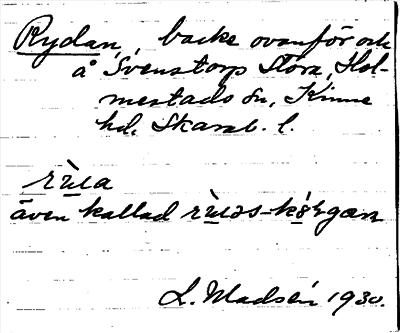 Rydan, backe ovanför och
å Svenstorp Stora, Hol-
mestads sn, Kinne
hd, Skarab. l.
rùɩa
även kallad rùɩəs-kørgan
L. Madsén 1930.